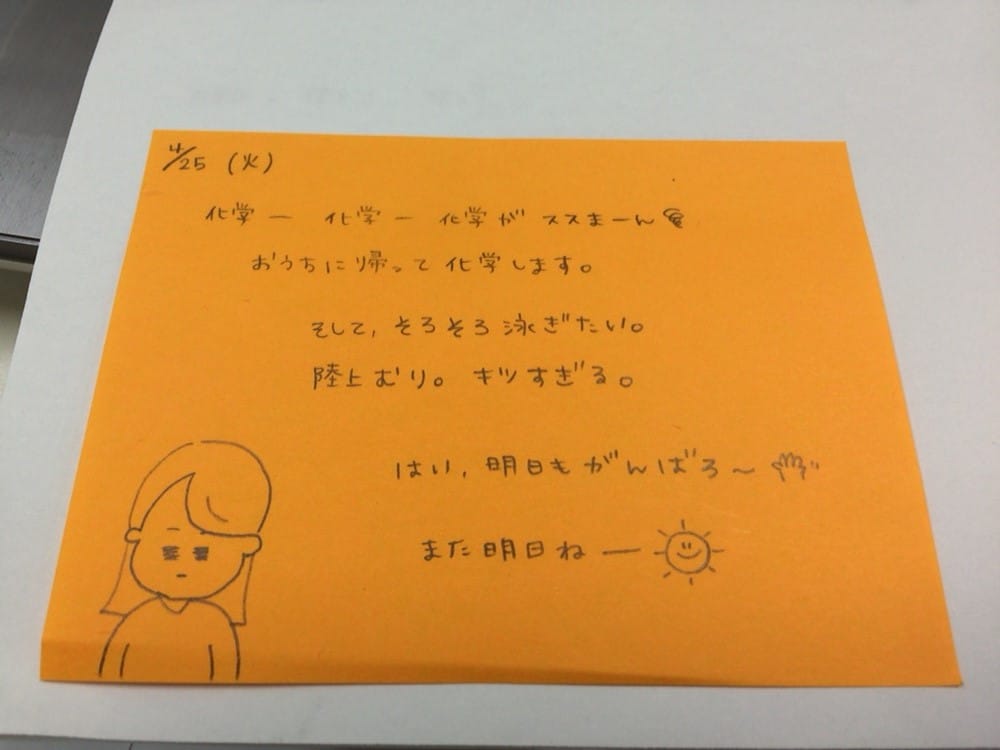 4/25 (火)
化学ー 化学ー 化学が ススまーん
おうちに帰って化学します。
そして, そろそろ泳ぎたい。
陸上むり。 キツすぎる。
はい, 明日もがんばろ〜
また明日ねー